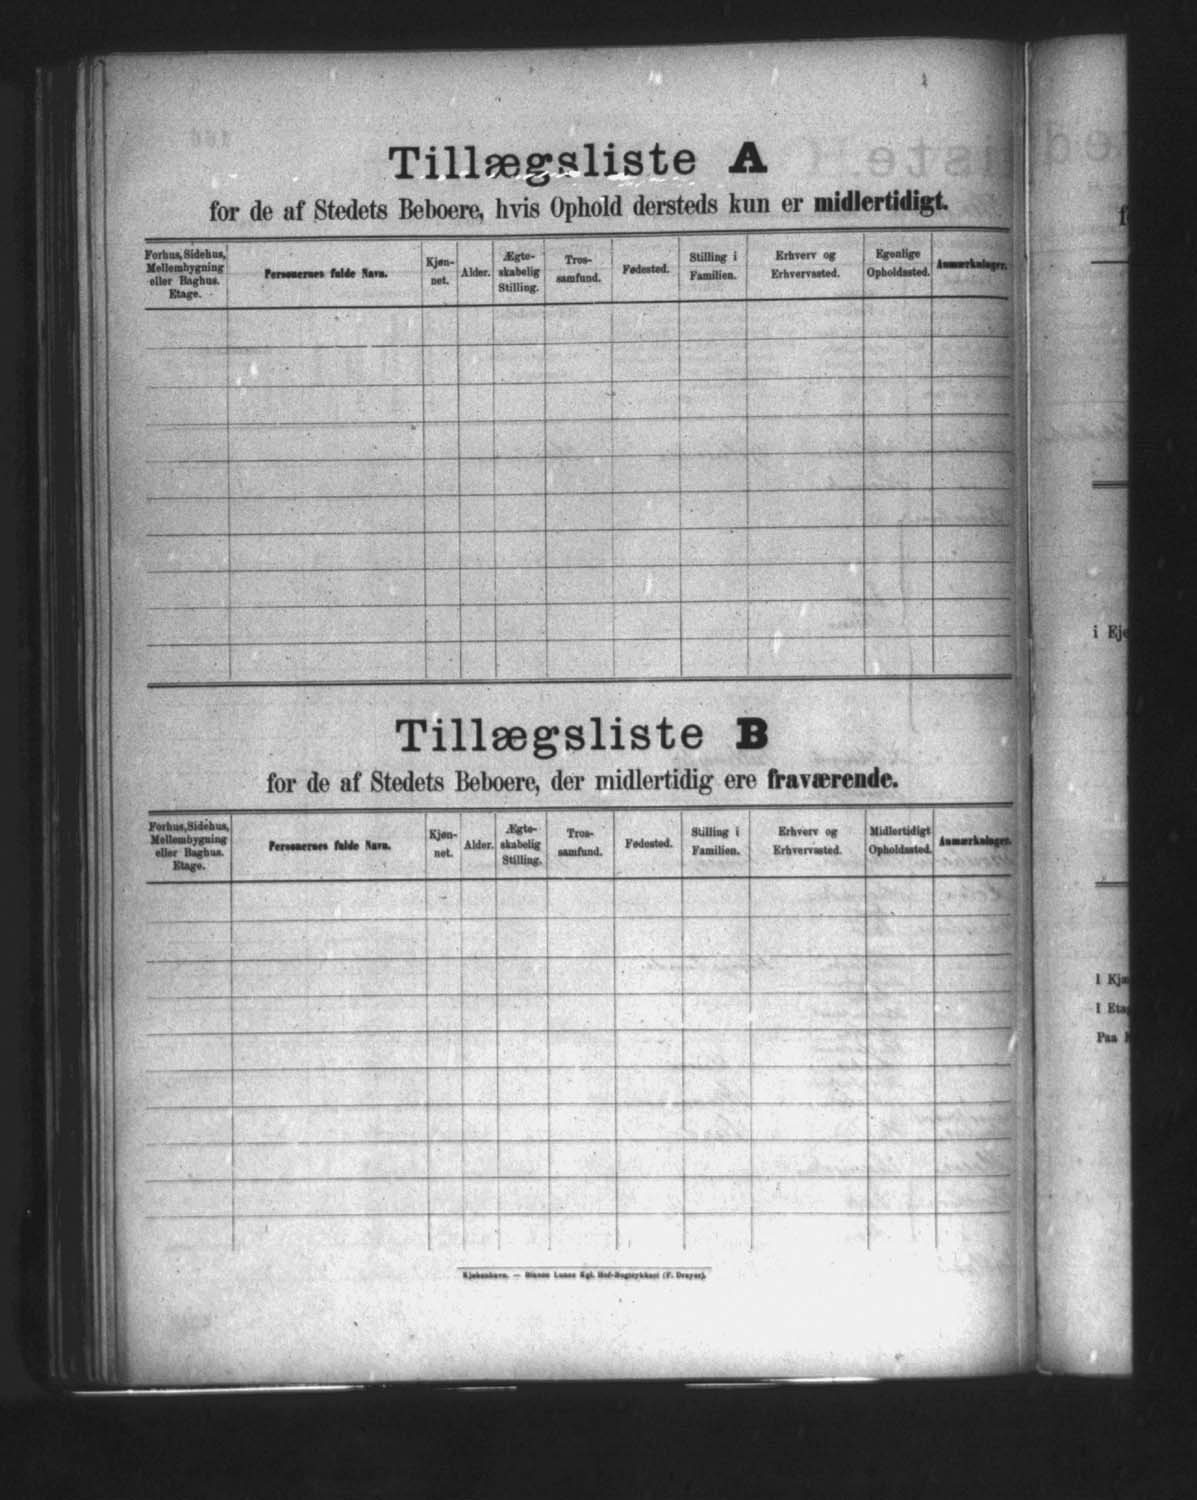 Tillægsliste A
for de af Stedets Beboere, hvis Ophold dersteds kun er midlertidigt.
Forhus, Sidehus, Mellembygning eller Baghus. Etage.
Personernes fulde Navn.
Kjøn-
net.
Alder.
Ægte-
skabelig
Stilling.
Tros-
samfund.
Fødested.
Stilling i
Familien.
Erhverv og
Erhvervssted.
Egenlige
Opholdssted.
Anmærkninger.
Tillægsliste B
for de af Stedets Beboere, der midlertidig ere fraværende.
Forhus, Sidehus,
Mellembygning
eller Baghus.
Etage.
Personernes fulde Navn.
Kjøn-
net.
Alder.
Ægte-
skabelig
Stilling.
Tros-
samfund.
Fødested.
Stilling i
Familien.
Erhverv og
Erhvervssted.
Midlertidigt
Opholdssted.
Anmærkninger.
Kjøbenhavn. — Bianco Lunos Kgl. Hof-Bogtrykkeri (F. Dreyer).
i Eje
I Kjæ
I Etag
Paa